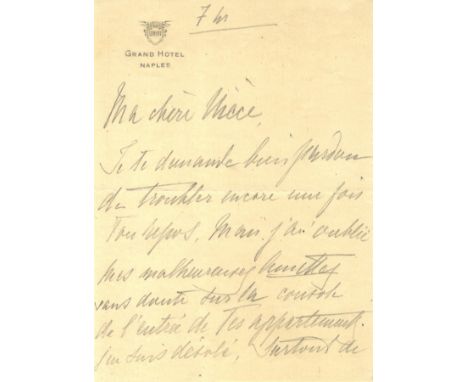 7 hr
GRAND HOTEL
NAPLES
Ma chère Nièce,
Je te demande bien pardon
de troubler encore une fois
ton repos, mais j'ai oublié
mes malheureuses lunettes
sans doute sur la console
de l'entrée de tes appartements.
J'en suis désolé, surtout de